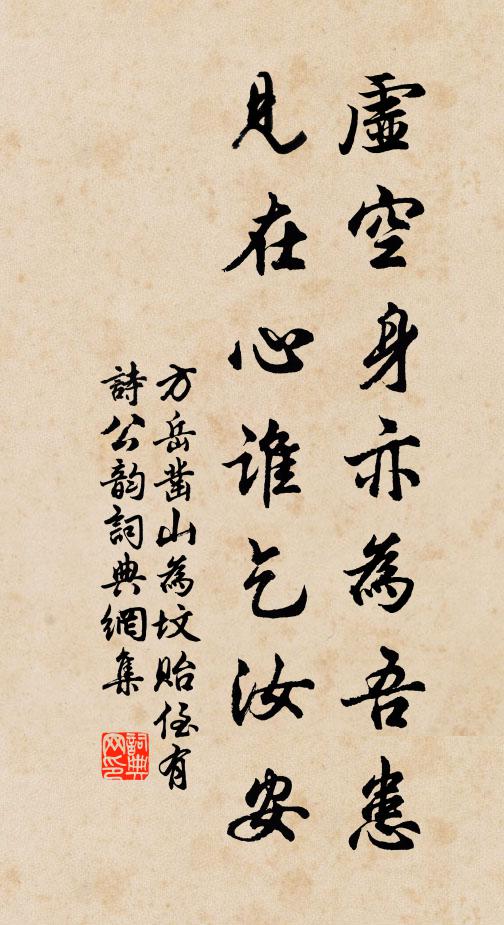 虛空身亦為吾患
見在心誰乞汝安
方岳鑿山為墳貽侄有
詩公韵詞典網集
詞典
网印